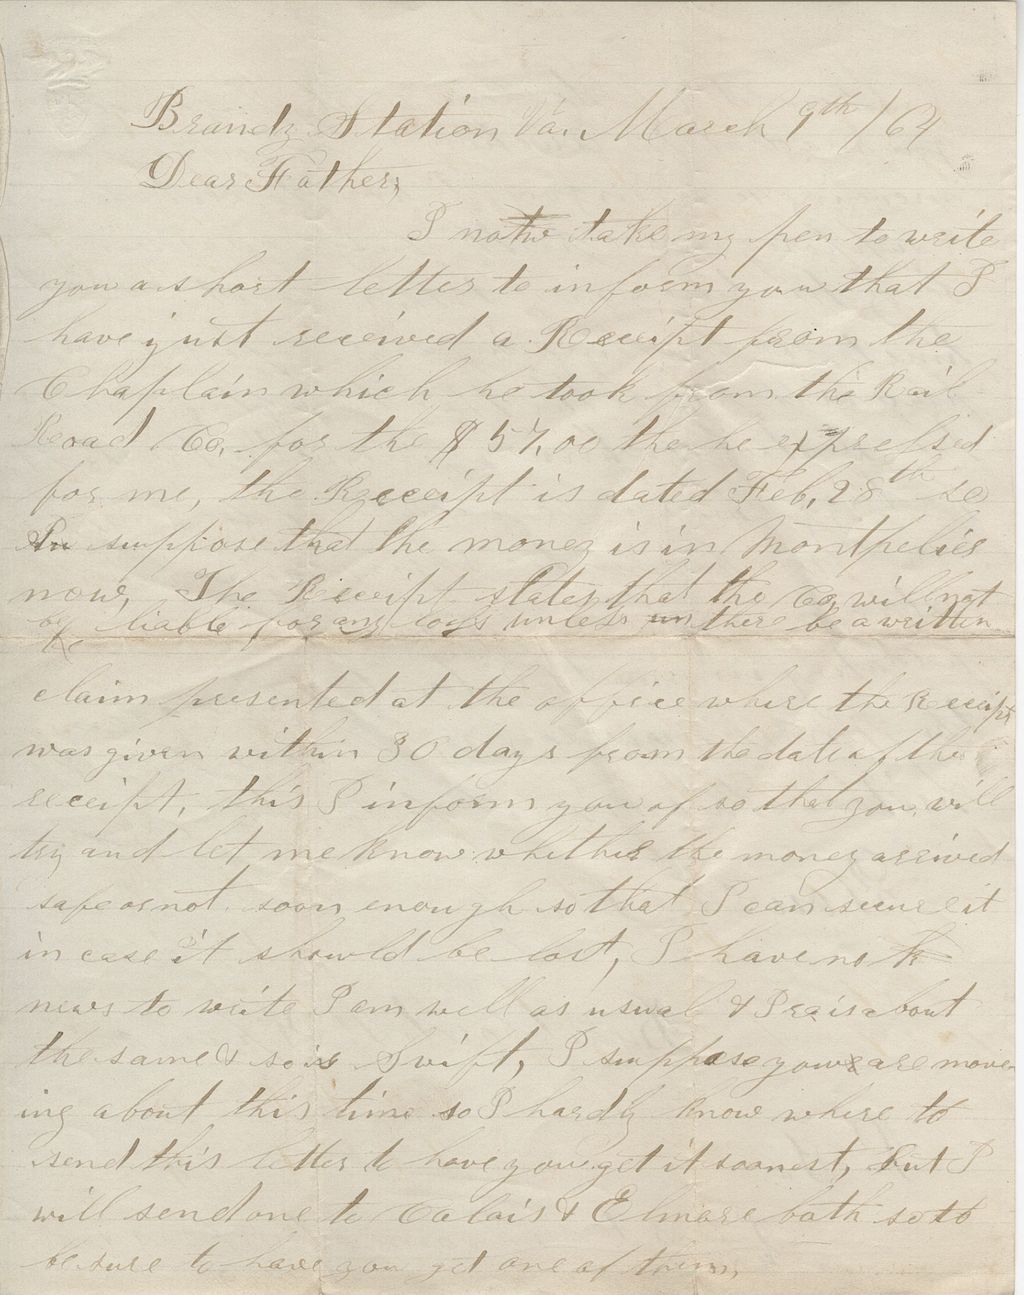 Brandy Station Va. March 9th /64
Dear Father,
I now take my pen to write
you a short letter to inform you that I
have just received a Receipt from the
Chaplain which he took from the Rail
Road Co. for the $57.00 the he expressed
for me, the Receipt is dated Feb, 28th so
I suppose that the money is in Montpelier
now, The Receipt states that the Co, will not
be liable for any loss unless un there be a written
claim presented at the office where the Receipt
was given within 30 days from the date of the
receipt, this I inform you of so that you will
try and let me know whither the money arrived
safe or not soon enough so that I can secure it
in case it should be lost, I have no
news to write I am well as usual & Pra is about
the same & so is Swift, I suppose you are move
ing about this time so I hardly know where to
send this letter to have you get it soonest, but I
will send one to Calais & Elmore both so to
be sure to have you get one of them,